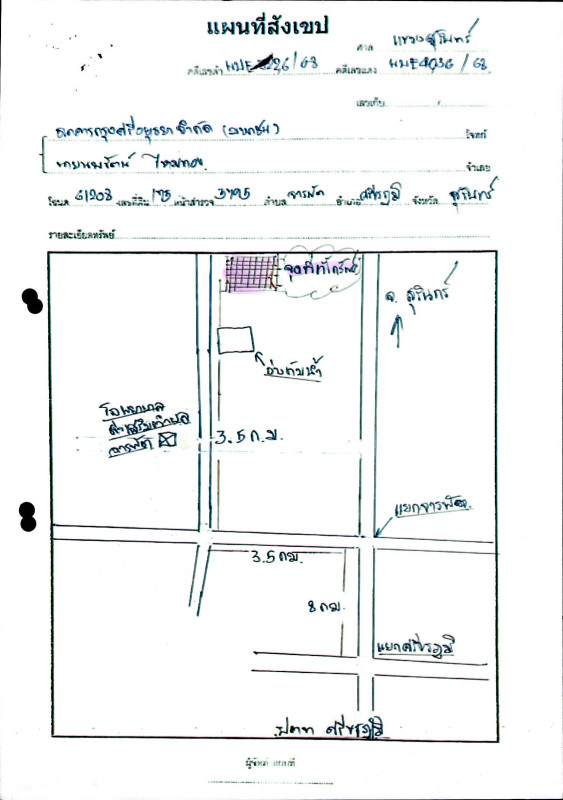 แผนที่สังเขป
ศาล แขวงสุรินทร์
คดีเลขดำ ผบE 226/68 คดีเลขแดง ผบE4036/68
เลขเก็บ
ธนาคารกรุงศรีอยุธยา จำกัด (มหาชน) โจทก์
จำเลย
โฉนด 61208 เลขที่ดิน 175 หน้าสำรวจ 3795 ตำบล จารพัต อำเภอ ศีขรภูมิ จังหวัด สุรินทร์
รายละเอียดทรัพย์
จุดที่ตั้งทรัพย์
จ. สุรินทร์
อ่างเก็บน้ำ
โรงพยาบาล
ส่งเสริมตำบล
จารพัต
3.5 ก.ม.
แยกจารพัต
3.5 กม.
8 กม.
แยกศีขรภูมิ
ศีขรภูมิ